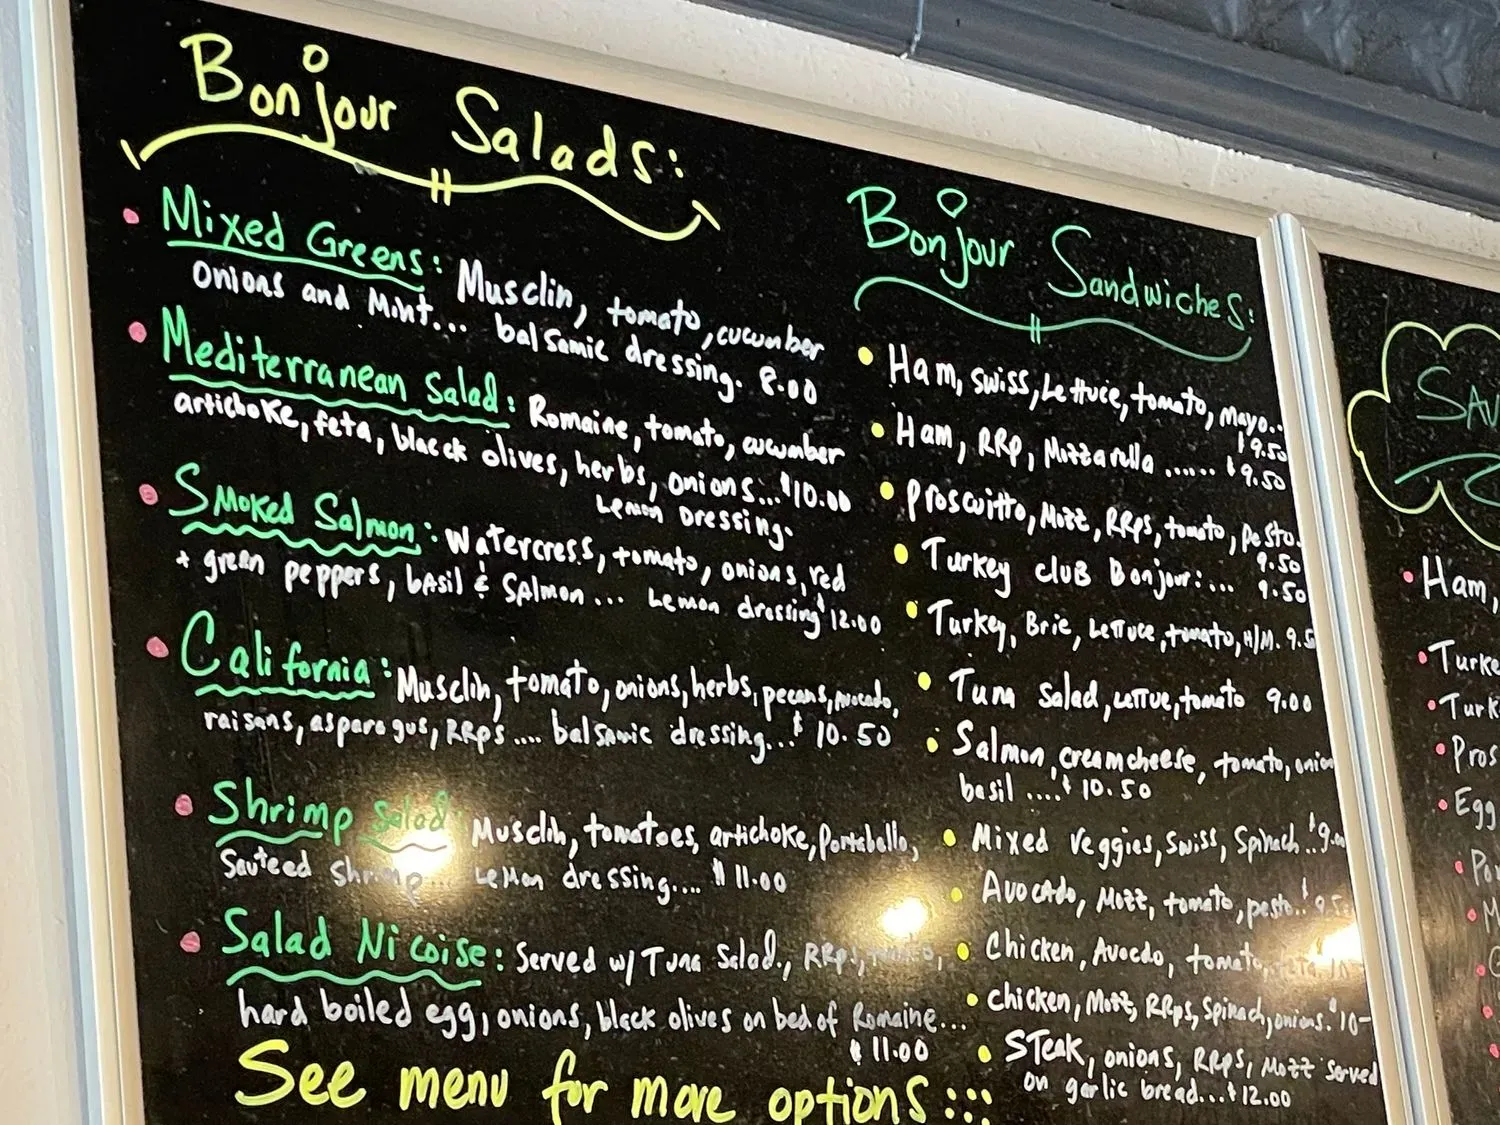 Bonjour Salads:
Mixed Greens: Musclin, tomato, cucumber
onions and Mint... balsamic dressing. 8.00
Mediterranean Salad: Romaine, tomato, cucumber
artichoke, feta, black olives, herbs, onions...$10.00
Lemon Dressing.
Smoked Salmon: Watercress, tomato, onions, red
+ green peppers, basil & Salmon... Lemon dressing $12.00
California: Musclin, tomato, onions, herbs, pecans, Avocado,
raisans, asparagus, RRps .... balsamic dressing...$10.50
Shrimp Salad: Musclin, tomatoes, artichoke, Portabello,
Sauteed Shrimp... Lemon dressing.... $11.00
Salad Nicoise: Served w/ Tuna Salad., RRps, tomato,
hard boiled egg, onions, black olives on bed of Romaine...
$11.00
See menu for more options:::
Bonjour Sandwiches:
Ham, swiss, Lettuce, tomato, Mayo..
$9.50
Ham, RRp, Mozzarella ...... $9.50
Proscuitto, Mozz, RRps, tomato, pesto.
9.50
Turkey club Bonjour:... 9.50
Turkey, Brie, Lettuce, tomato, H/M. 9.5
Tuna Salad, Lettuce, tomato 9.00
Salmon, creamcheese, tomato, onion
basil ....$10.50
Mixed Veggies, Swiss, Spinach..$9.00
Avocado, Mozz, tomato, pesto..$9.5
Chicken, Avocdo, tomato,
chicken, Mozz, RRps, Spinach, onions. $10-
STeak, onions, RRps, Mozz served
on garlic bread...$12.00
SAV
Ham,
Turke
Turk
Pros
Egg